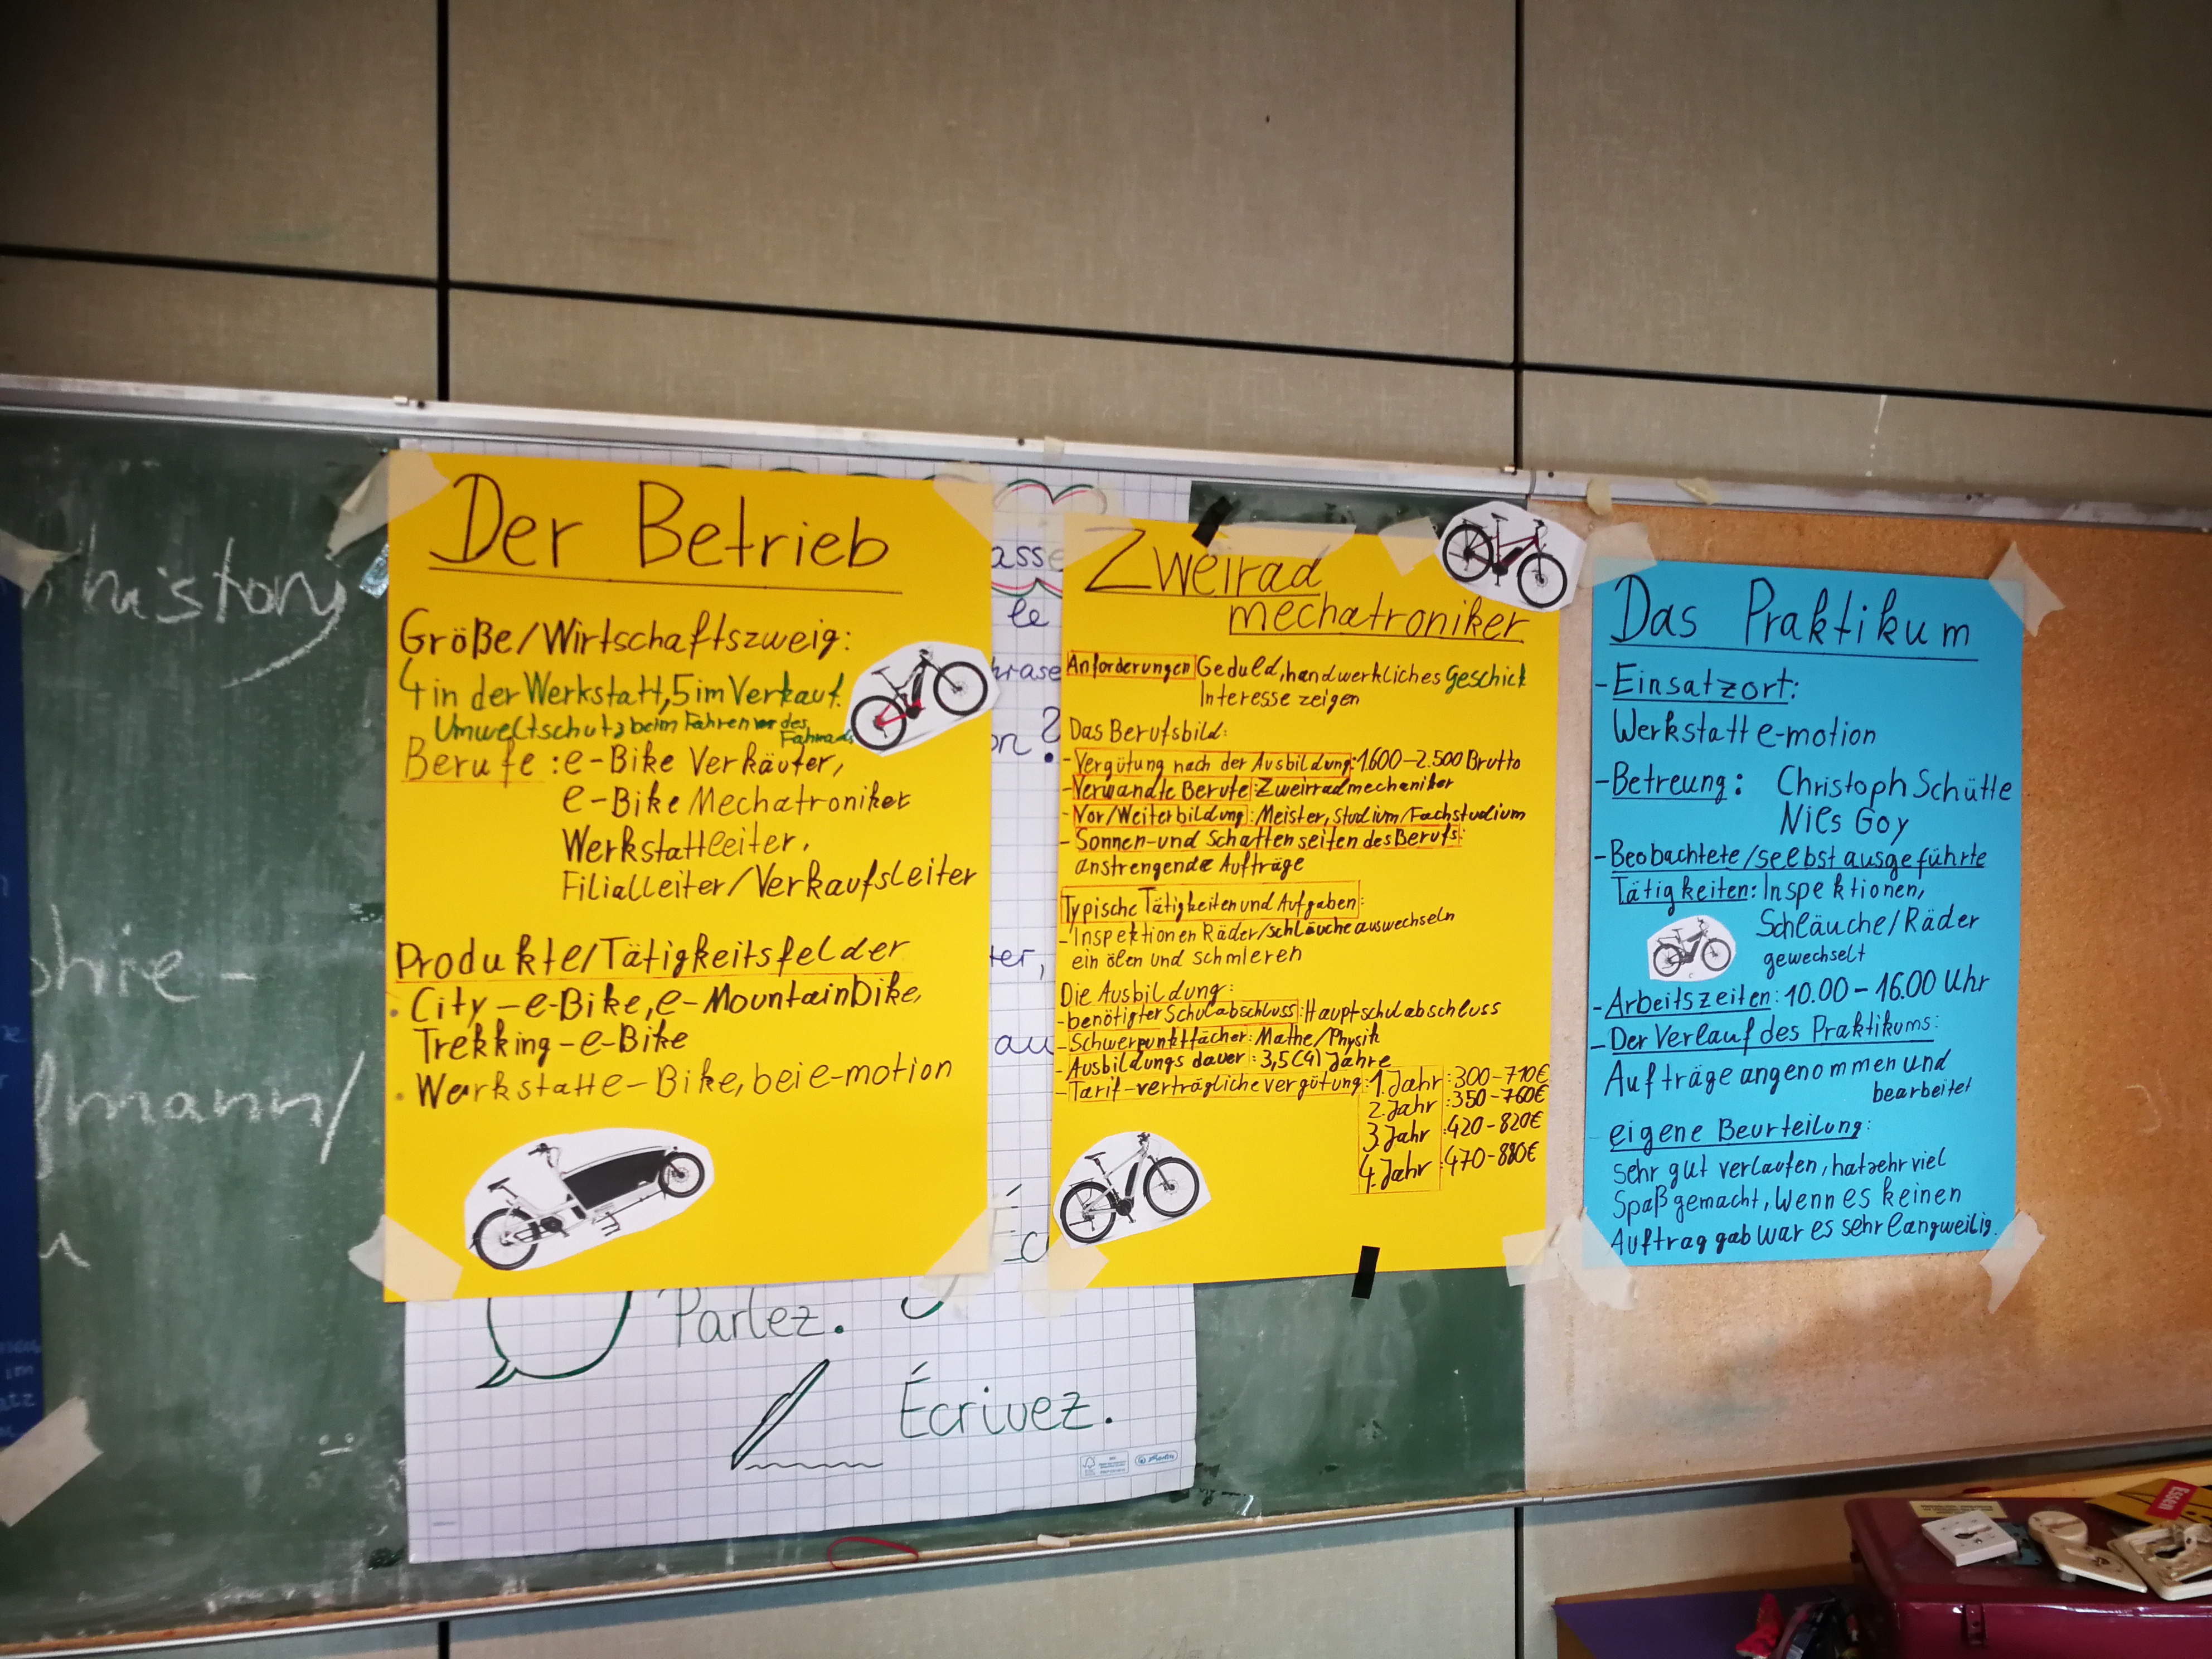 history
phie-
mann/
Der Betrieb
Größe/Wirtschaftszweig:
4 in der Werkstatt, 5 im Verkauf.
Umweltschutz beim Fahren des
Fahrrads
Berufe: e-Bike Verkäufer,
e-Bike Mechatroniker
Werkstattleiter,
Filialleiter/Verkaufsleiter
Produkte/Tätigkeitsfelder
• City-e-Bike, e-Mountainbike,
Trekking-e-Bike
• Werkstatt e-Bike, bei e-motion
asse
le
hrase
on?
ter,
au
Parlez.
Écrivez.
Zweirad
mechatroniker
Anforderungen Geduld, handwerkliches Geschick
Interesse zeigen
Das Berufsbild:
-Vergütung nach der Ausbildung: 1.600-2.500 Brutto
-Verwandte Berufe: Zweirradmechaniker
-Vor/Weiterbildung: Meister, Studium/Fachstudium
-Sonnen-und Schattenseiten des Berufs:
anstrengende Aufträge
Typische Tätigkeiten und Aufgaben:
-Inspektionen Räder/schläuche auswechseln
ein ölen und schmieren
Die Ausbildung:
-benötigter Schulabschluss: Hauptschulabschluss
-Schwerpunktfächer: Mathe/Physik
-Ausbildungs dauer: 3,5(4) Jahre
-Tarif-verträgliche vergütung: 1. Jahr: 300-710€
2. Jahr: 350-760€
3. Jahr: 420-820€
4. Jahr: 470-880€
Das Praktikum
-Einsatzort:
Werkstatt e-motion
-Betreung: Christoph Schütte
Niels Goy
-Beobachtete/seelbst ausgeführte
Tätigkeiten: Inspektionen,
Schläuche/Räder
gewechselt
-Arbeitszeiten: 10.00-16.00 Uhr
-Der Verlauf des Praktikums:
Aufträge angenommen und
bearbeitet
eigene Beurteilung:
sehr gut verlaufen, hat sehr viel
Spaß gemacht, Wenn es keinen
Auftrag gab war es sehr langweilig.
Essen